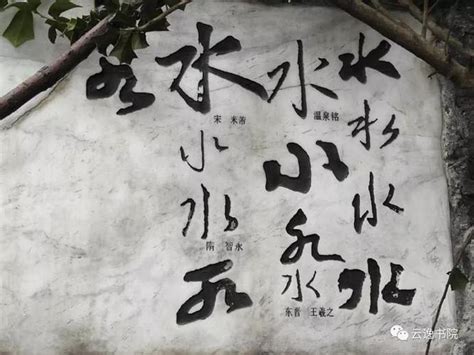 水
水
水
水
水
温泉铭
水
水
水
东晋 王羲之
水
宋 米芾
水
水
隋 智永
水
水
云逸书院